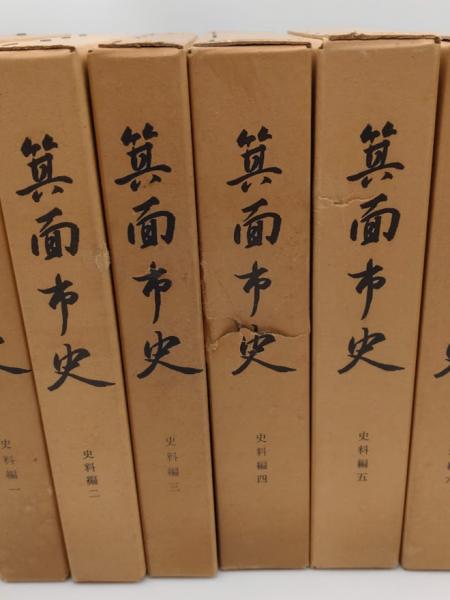 史
史料編一
箕面市史
史料編二
箕面市史
史料編三
箕面市史
史料編四
箕面市史
史料編五